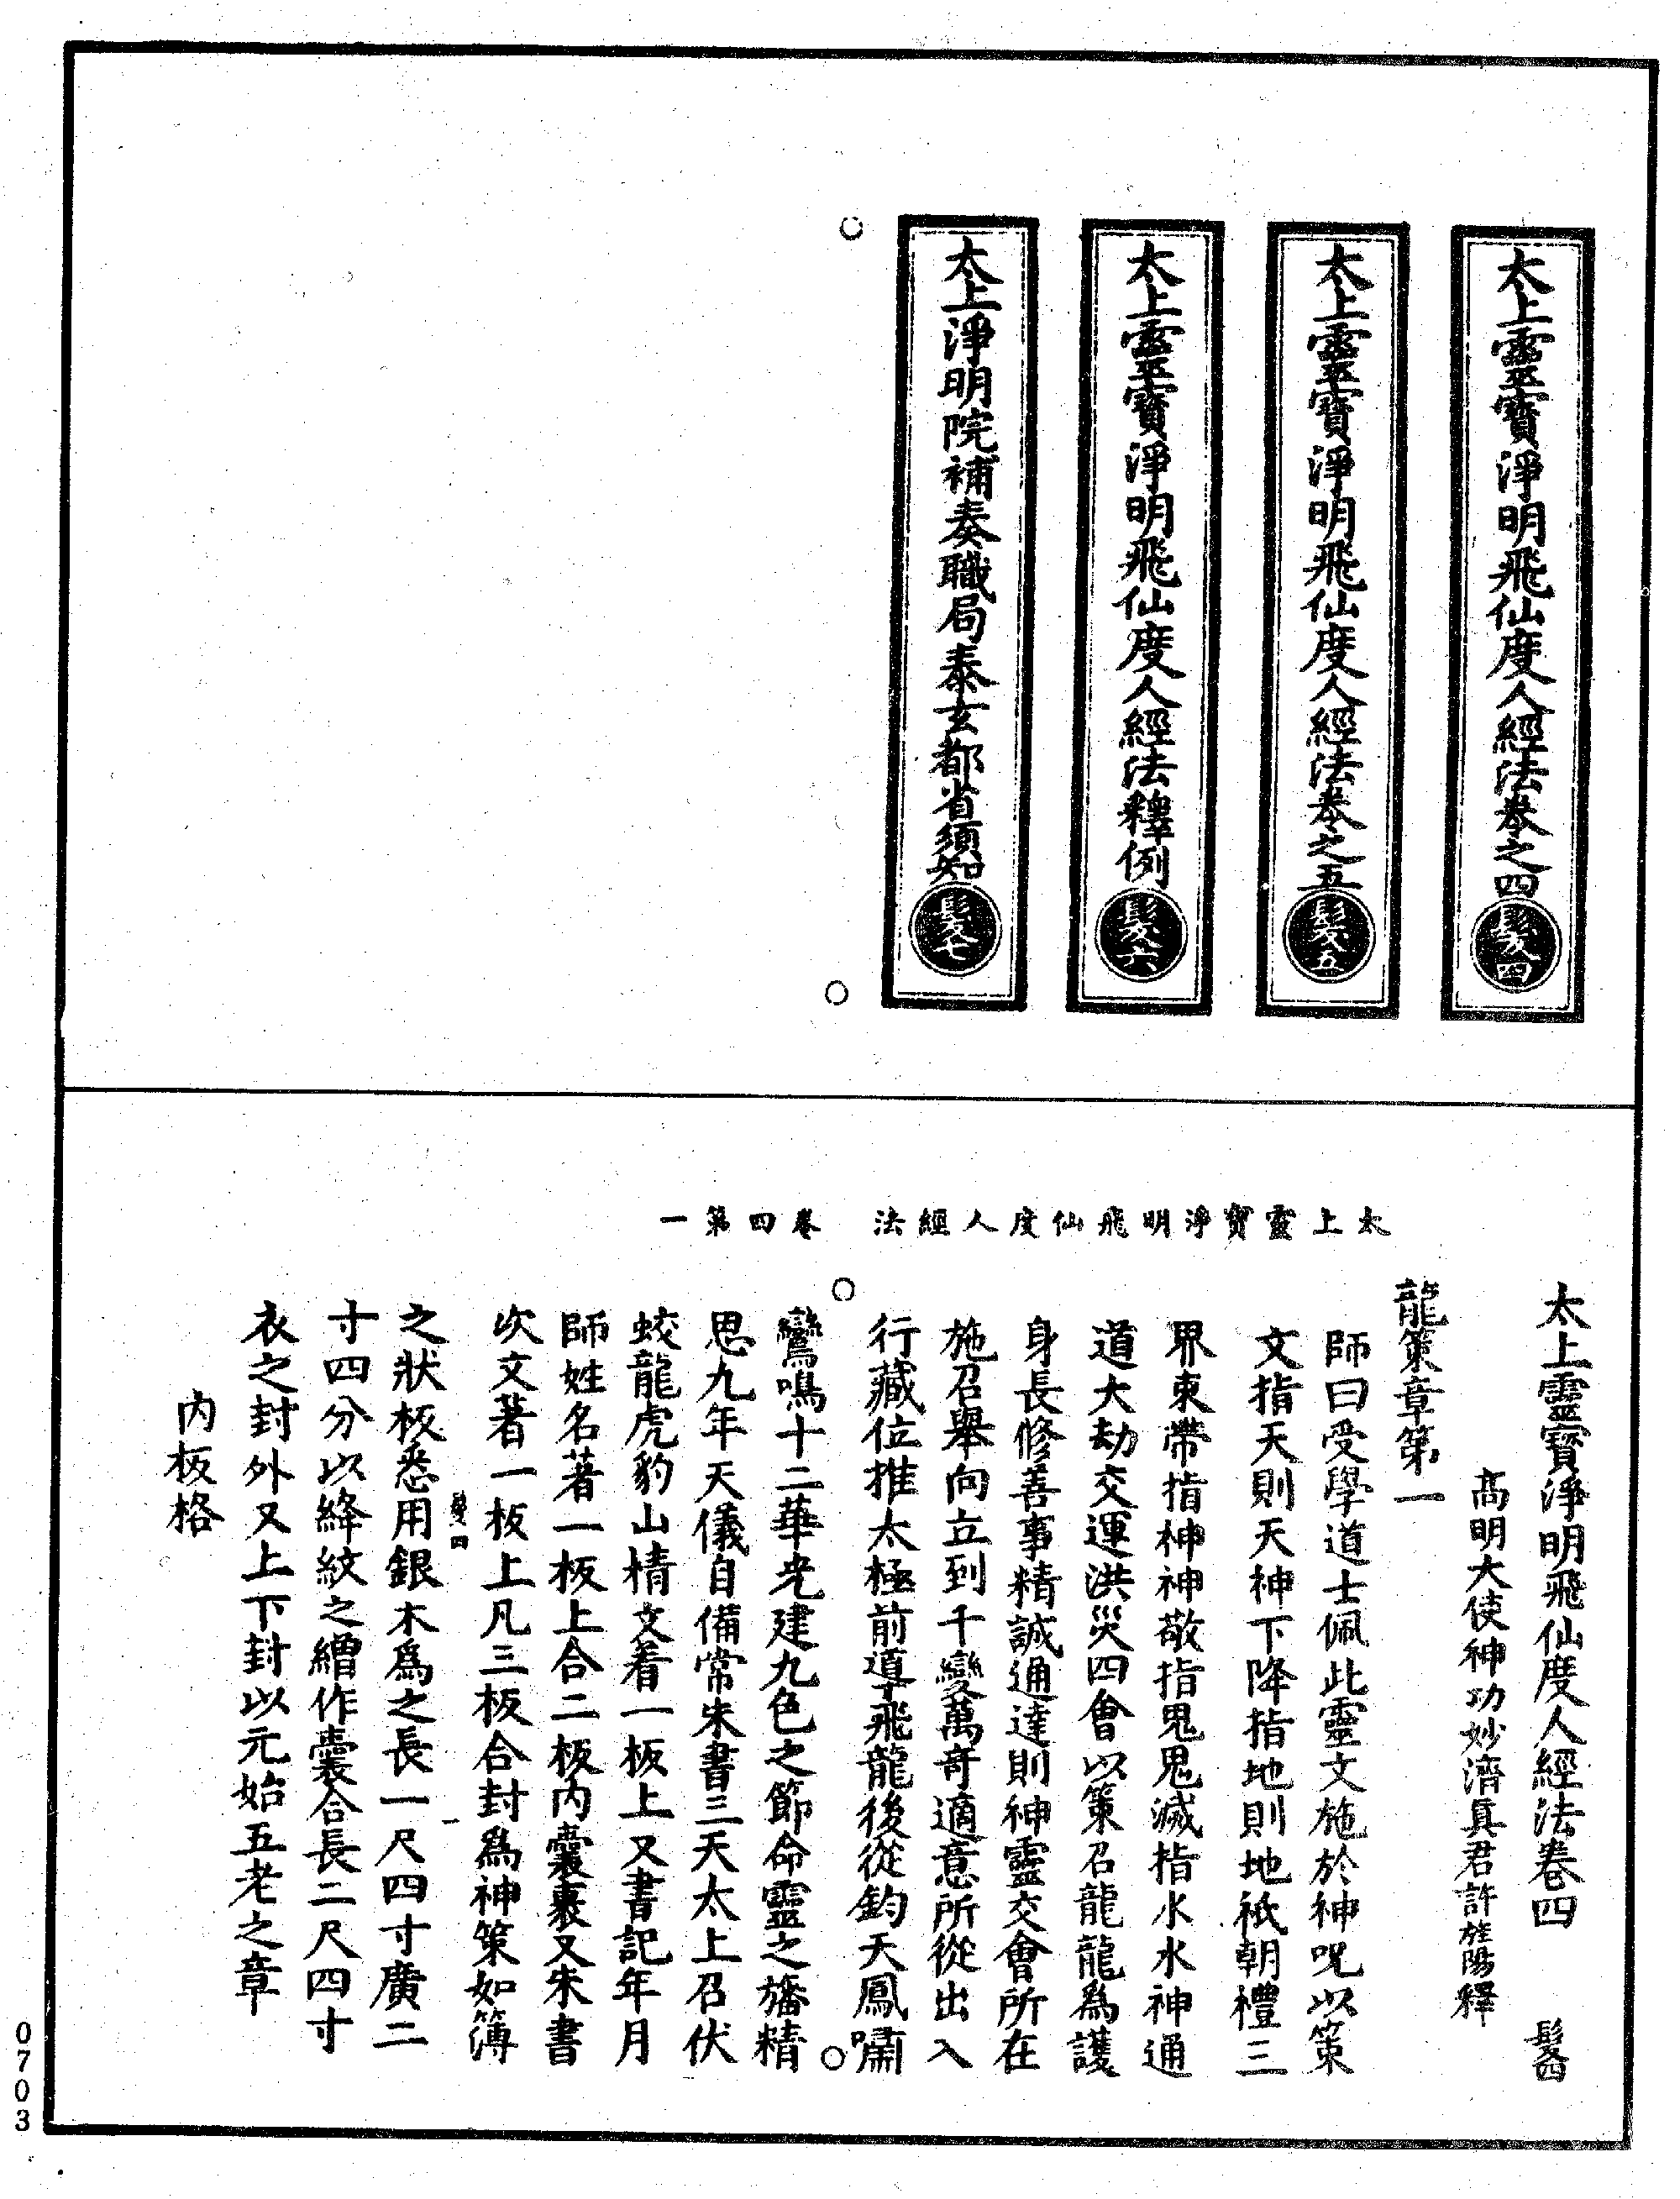 太上靈寶淨明飛仙度人經法卷之四 髮四
太上靈寶淨明飛仙度人經法卷之五 髮五
太上靈寶淨明飛仙度人經法釋例 髮六
太上淨明院補奏職局泰玄都省須知 髮七
太上靈寶淨明飛仙度人經法 卷四第一
太上靈寶淨明飛仙度人經法卷四 髮四
高明大使神功妙濟真君許旌陽釋
龍策章第一
師曰受學道士佩此靈文施於神呪以策
文指天則天神下降指地則地祇朝禮三
界束帶指神神敬指鬼鬼滅指水水神通
道大劫交運洪災四會以策召龍龍為護
身長修善事精誠通達則神靈交會所在
施召舉向立到千變萬奇適意所從出入
行藏位推太極前導飛龍後從鈞天鳳嘯
鸞鳴十二華光建九色之節命靈之旛精
思九年天儀自備常朱書三天太上召伏
蛟龍虎豹山精文着一板上又書記年月
師姓名著一板上合二板內囊裹又朱書
次文著一板上凡三板合封為神策如簿
髮四 一
之狀板悉用銀木為之長一尺四寸廣二
寸四分以絳紋之繒作囊合長二尺四寸
衣之封外又上下封以元始五老之章
內板格
0703